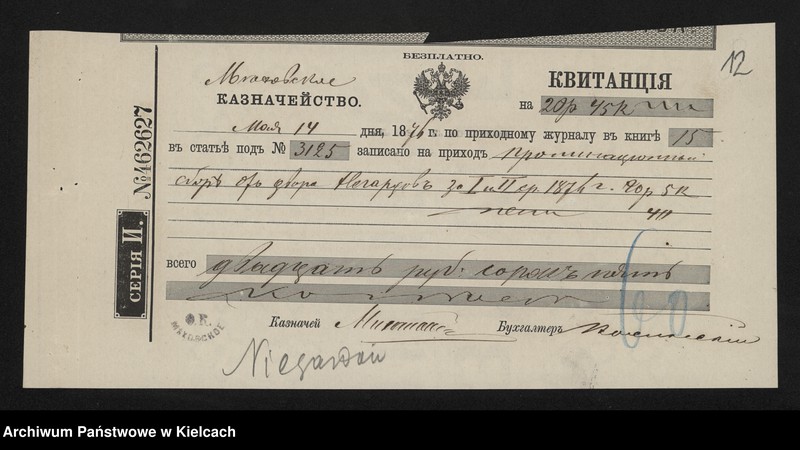 12
БЕЗПЛАТНО.
Мѣховское
КАЗНАЧЕЙСТВО.
КВИТАНЦІЯ
на 20р 45к
Мая 14 дня, 1876 г. по приходному журналу въ книгѣ 15
въ статьѣ подъ № 3125 записано на приходъ
сборъ съ двора Негардовъ за I и II 1876 г. 20р 5к
пени 40
всего двадцать руб. сорокъ пять
СЕРІЯ И. №462627
Ѳ.К.
МѢХОВСКОЕ
Казначей
Бухгалтеръ
60
Niegardów
Archiwum Państwowe w Kielcach